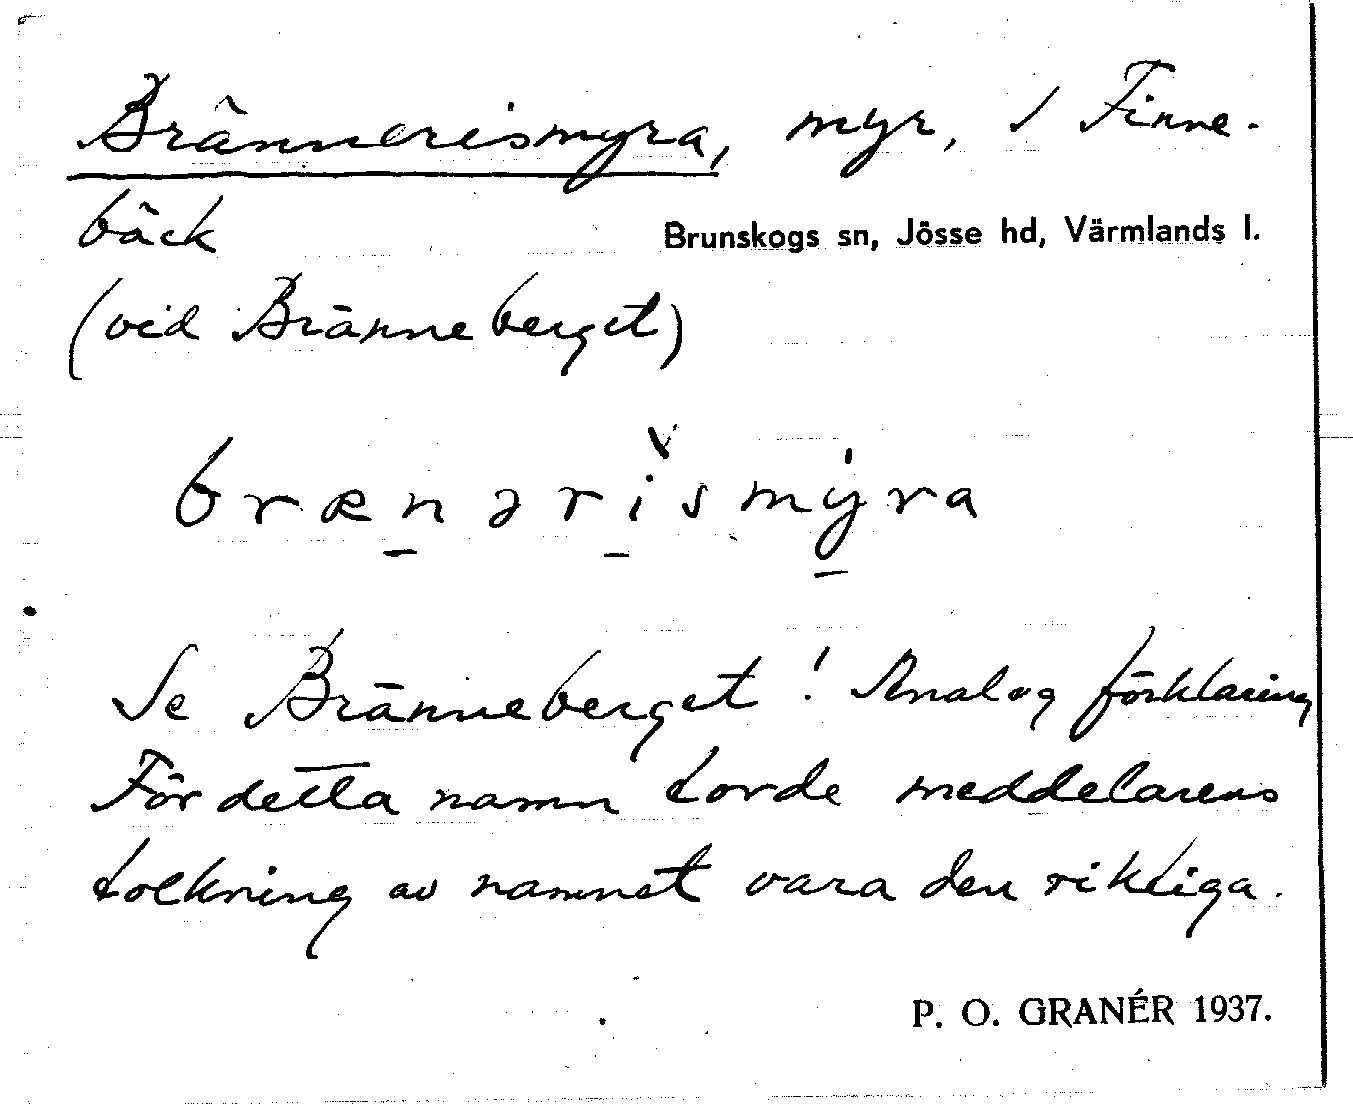 Brännerismyra, myr, 1 Finne-
bäck
Brunskogs sn, Jösse hd, Värmlands l.
(vid Bränneberget)
brænərismýra
Se Bränneberget! Analog förklaring
För detta namn torde meddelarens
tolkning av namnet vara den riktiga.
P. O. GRANÉR 1937.